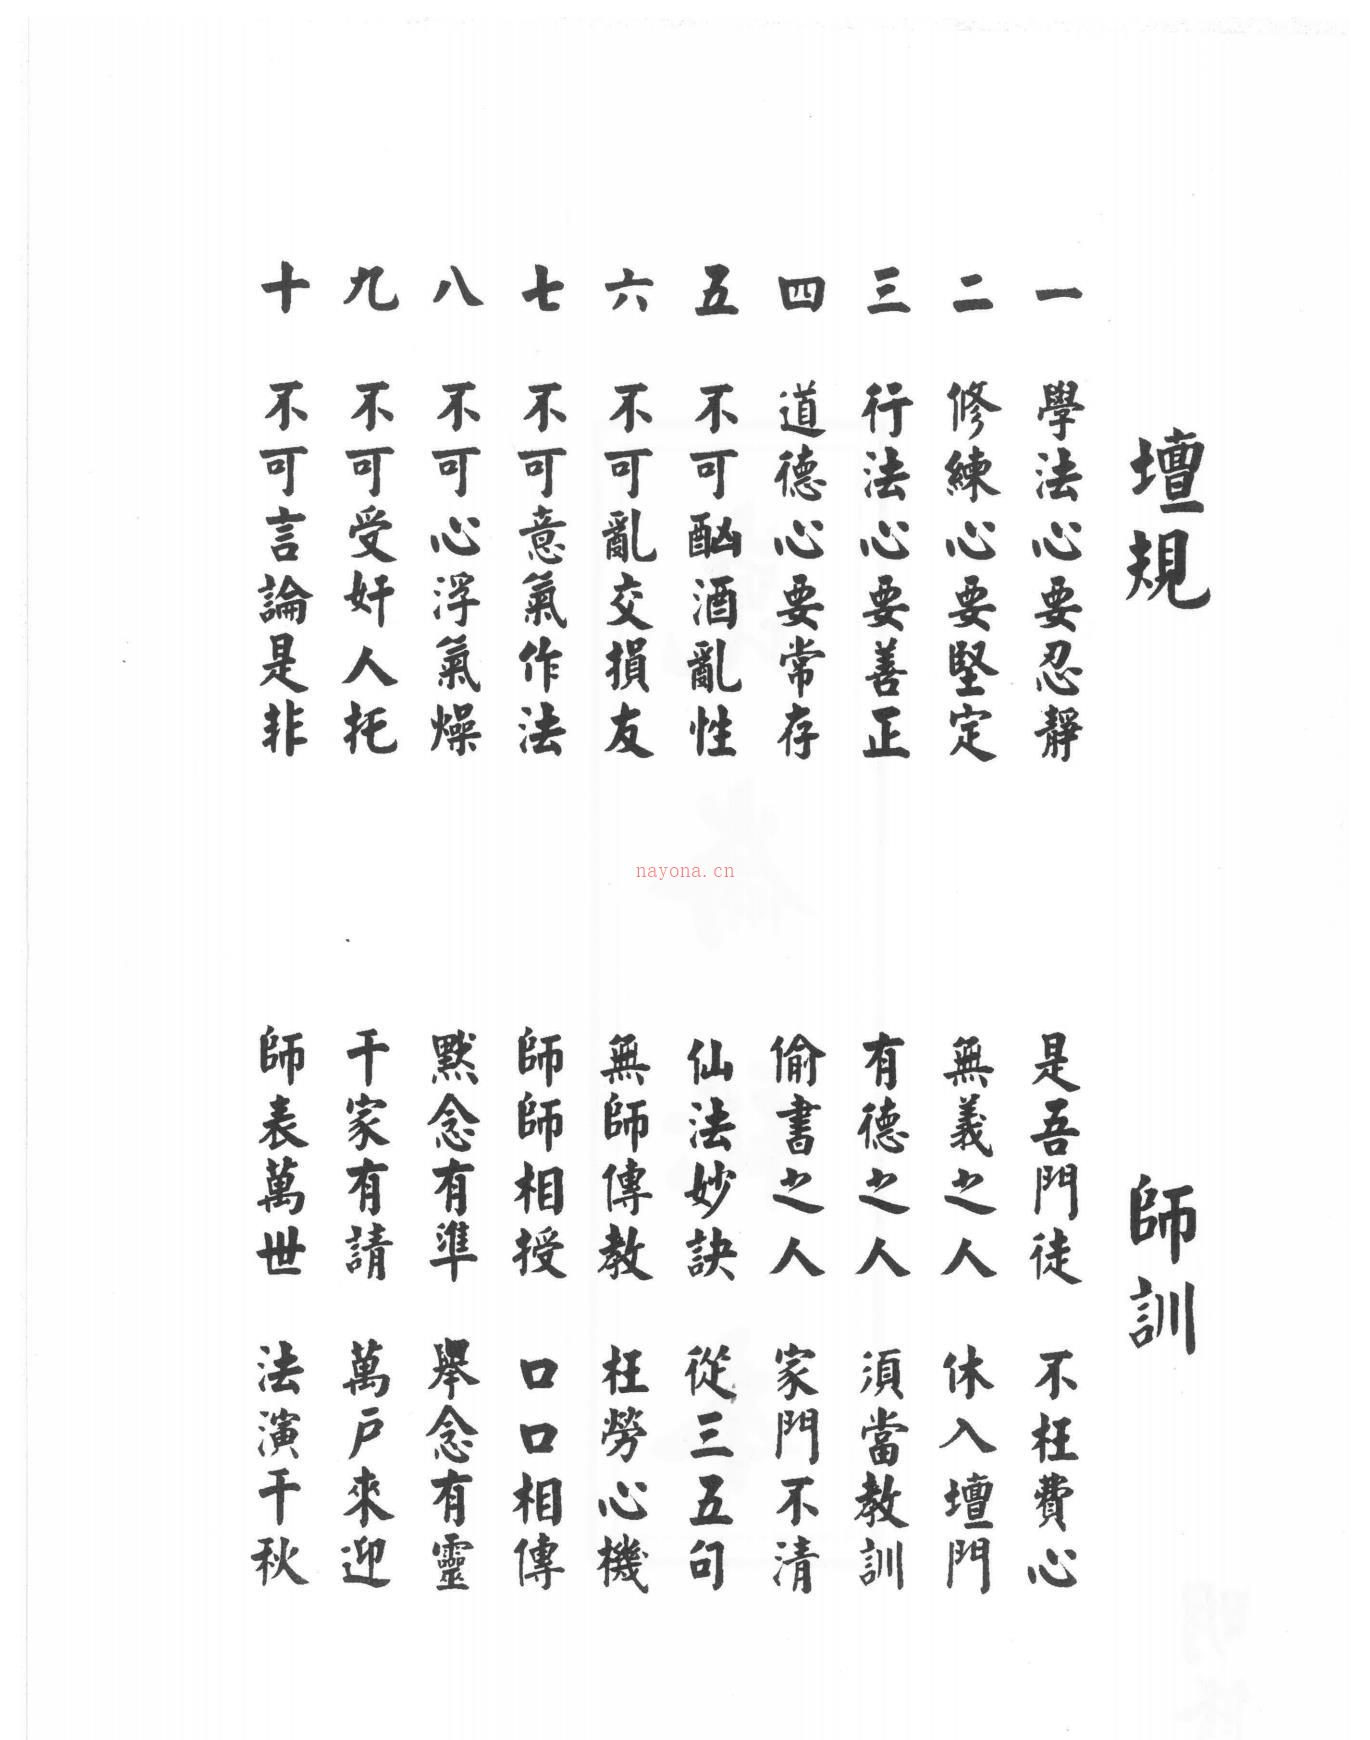 壇規
一 學法心要忍靜
二 修練心要堅定
三 行法心要善正
四 道德心要常存
五 不可酗酒亂性
六 不可亂交損友
七 不可意氣作法
八 不可心浮氣燥
九 不可受奸人托
十 不可言論是非
師訓
是吾門徒 不枉費心
無義之人 休入壇門
有德之人 須當教訓
偷書之人 家門不清
仙法妙訣 從三五句
無師傳教 枉勞心機
師師相授 口口相傳
默念有準 舉念有靈
千家有請 萬戶來迎
師表萬世 法演千秋
nayona.cn